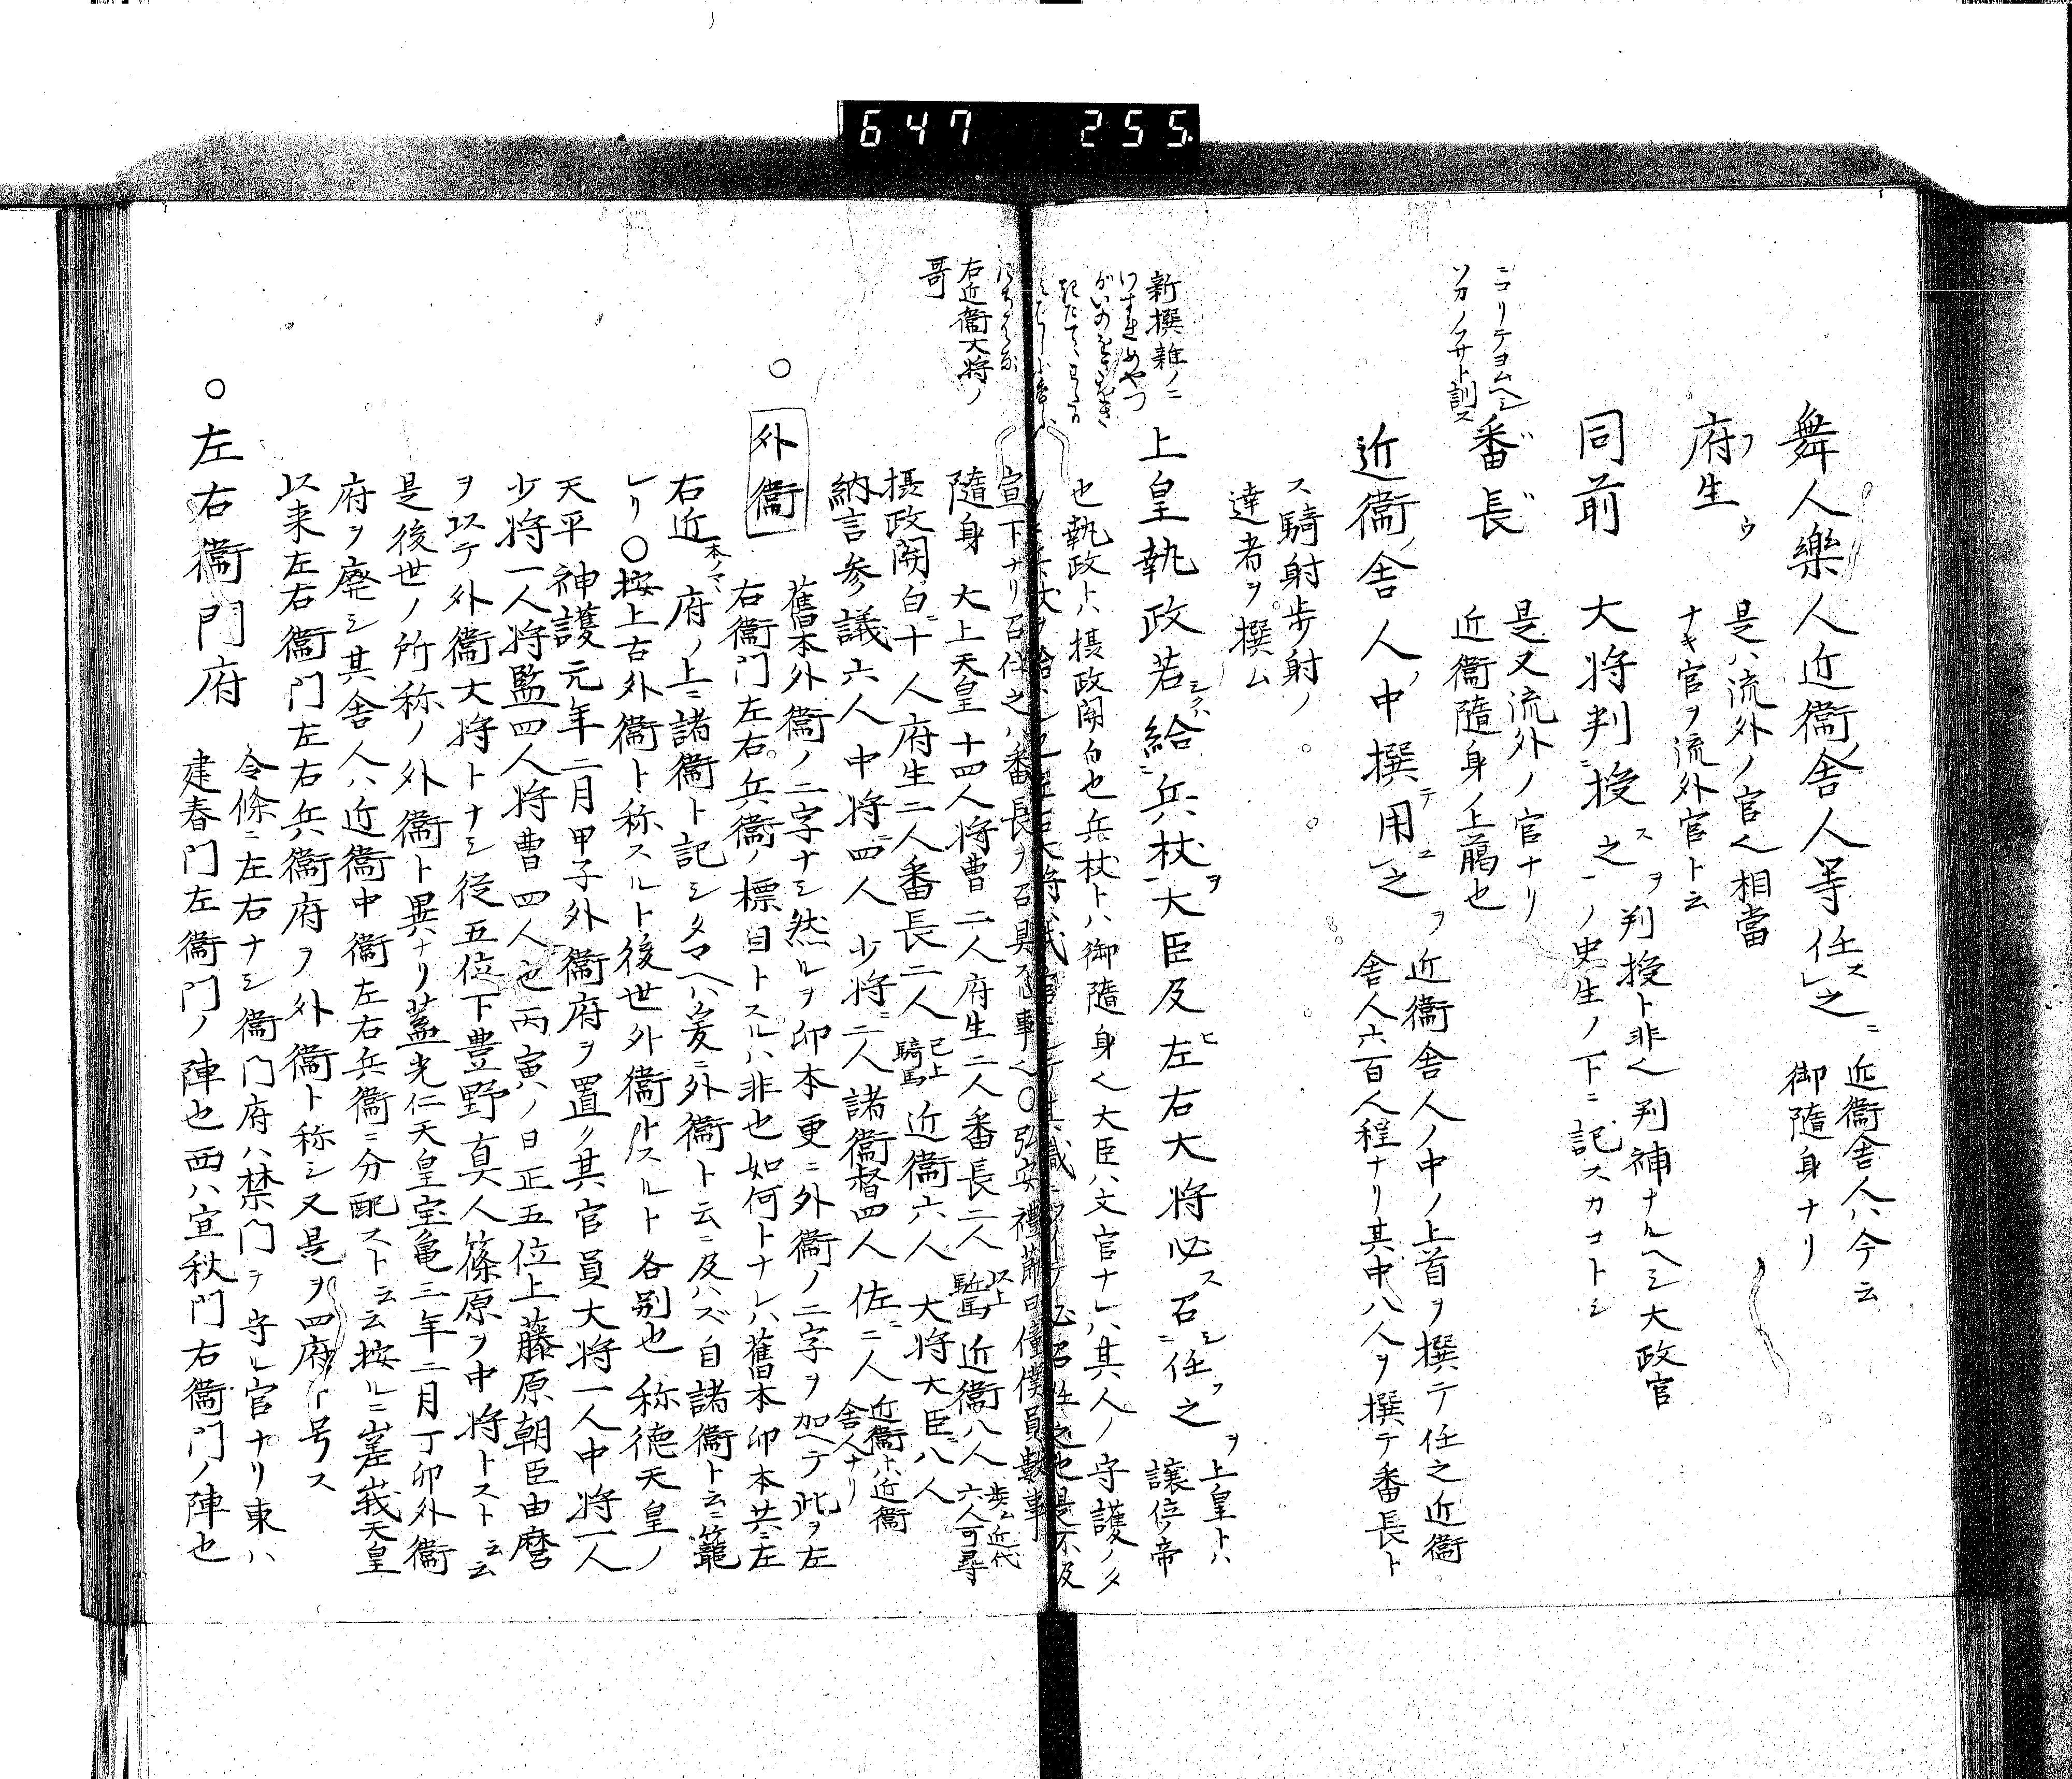 647 255
舞人樂人近衞舎人等任スレ之ニ
近衞舎人ハ今云
御隨身ナリ
府生
フ ウ
是ハ流外ノ官也相當
ナキ官ヲ流外官ト云
同前
大将判ニ授ス之ヲ
判授ト非也判補ナルヘシ大政官
ノ史生ノ下ニ記スカコトシ
ニコリテヨムヘシ
ソカノフサト訓ス
番長
是又流外ノ官ナリ
近衞隨身ノ上﨟也
近衞ノ舎人ノ中撰テ用ユ之ヲ
近衞舎人ノ中ノ上首ヲ撰テ任之近衞
舎人六百人程ナリ其中八人ヲ撰テ番長ト
ス騎射歩射ノ
達者ヲ撰ム
新撰雜ノニ
上皇執政若シ給ハ兵杖ヲ大臣及ヒ左右大将必ス召シ任フ之ヲ
上皇トハ
譲位ノ帝
也執政トハ摂政関白也兵杖トハ御隨身也大臣ハ文官ナレハ其人ノ守護ノタ
宣下ナリ召仕之ハ番長ヲ召具ス心事也〇弘安禮節曰僮僕員數事
右近衞大将ノ
哥
隨身 大上天皇十四人将曹二人府生二人番長二人以上騎馬近衞八人歩ム近代六人可尋
摂政関白十人府生二人番長二人已上騎馬近衞六人 大将大臣ニ八人
納言参議六人中将ニ四人 少将ニ二人諸衞督四人 佐ニ二人近衞トハ近衞舎人ナリ
〇外衞
舊本外衞ノ二字ナシ然ルヲ印本更ニ外衞ノ二字ヲ加ヘテ此ヲ左
右衞門左右兵衞ノ標目トスルハ非也如何トナレハ舊本印本共ニ左
右近本ノマヽ府ノ上ニ諸衞ト記シタマヘハ爰ニ外衞ト云ニ及ハズ自諸衞ト云ニ籠
レリ〇按上古外衞ト称スルト後世外衞トスルト各別也称徳天皇ノ
天平神護元年二月甲子外衞府ヲ置ク其官員大将一人中将一人
少将一人将監四人将曹四人也丙寅ノ日正五位上藤原朝臣由麿
ヲ以テ外衞大将トナシ従五位下豊野真人篠原ヲ中将トスト云云
是後世ノ所称ノ外衞ト異ナリ蓋光仁天皇宝亀三年二月丁卯外衞
府ヲ廃シ其舎人ハ近衞中衞左右兵衞ニ分配スト云云按ルニ嵯峩天皇
以来左右衞門左右兵衞府ヲ外衞ト称シ又是ヲ四府ト号ス
〇左右衞門府
令條ニ左右ナシ衞門府ハ禁門ヲ守ル官ナリ東ハ
建春門左衞門ノ陣也西ハ宣秋門右衞門ノ陣也